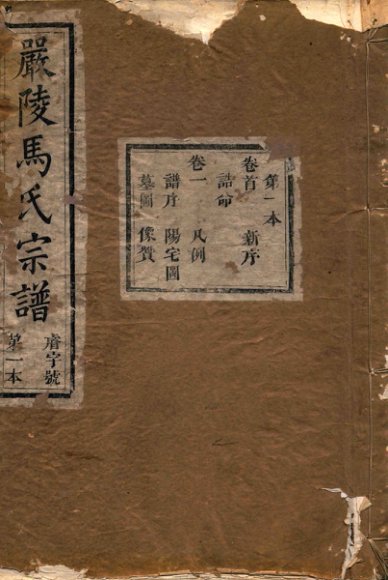 嚴陵馬氏宗譜
睿字號
第一本
第一本
卷首 新序
誥命
卷一 凡例
譜序 陽宅圖
墓圖 像贊